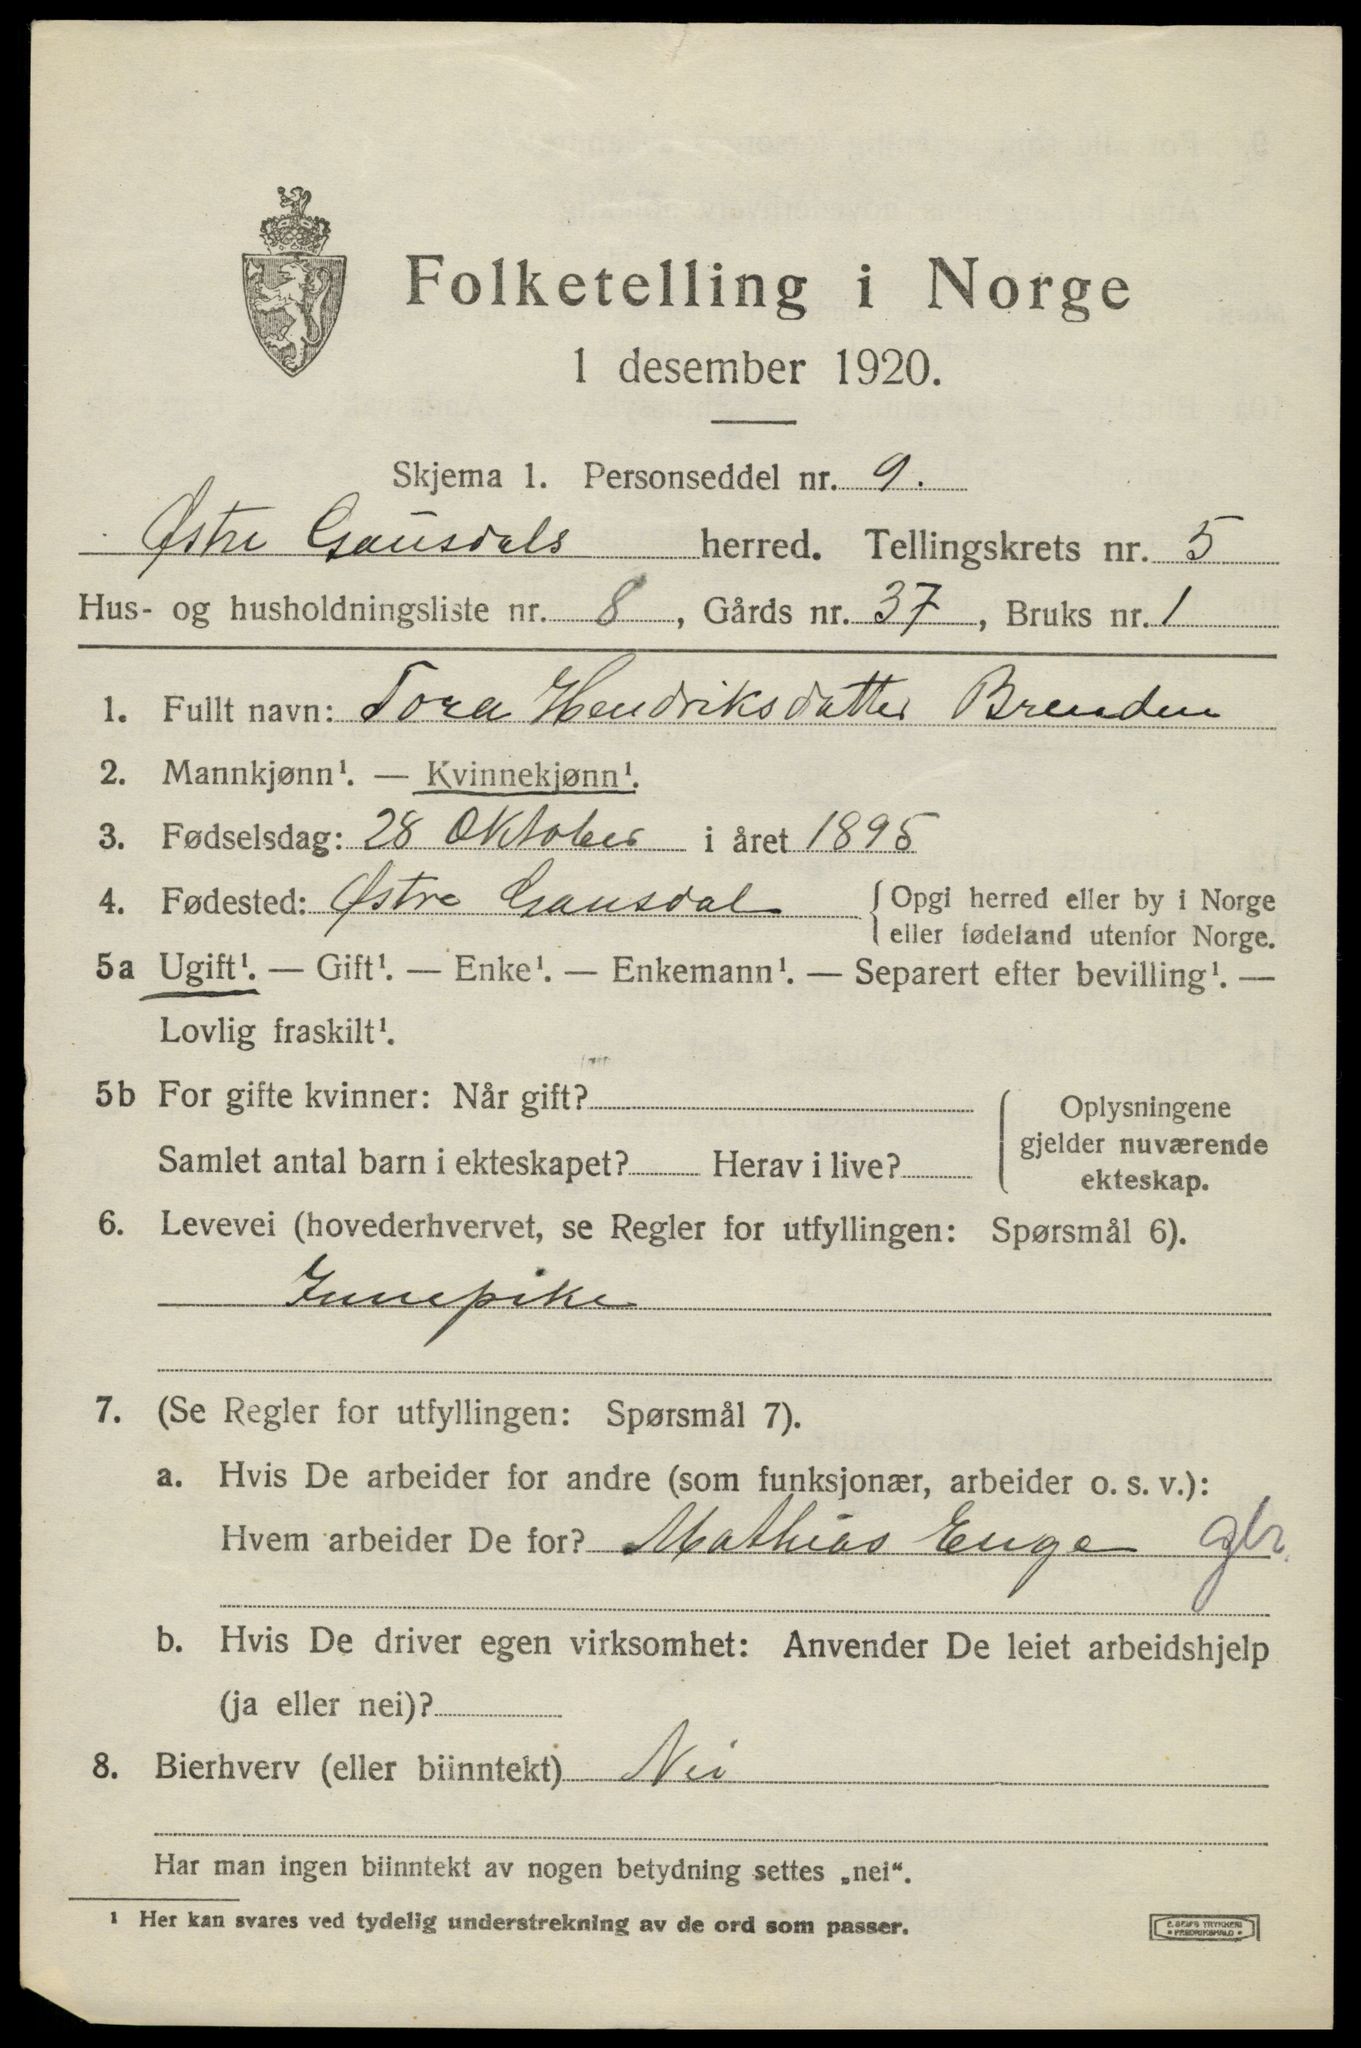 Folketelling i Norge
1 desember 1920.
Skjema 1. Personseddel nr. 9.
Østre Gausdals herred. Tellingskrets nr. 5
Hus- og husholdningsliste nr. 8, Gårds nr. 37, Bruks nr. 1
1. Fullt navn: Tora Hendriksdatter Brenden
2. Mannkjønn¹. — Kvinnekjønn¹.
3. Fødselsdag: 28 Oktober i året 1895
4. Fødested: Østre Gausdal { Opgi herred eller by i Norge
eller fødeland utenfor Norge.
5a Ugift¹. — Gift¹. — Enke¹. — Enkemann¹. — Separert efter bevilling¹. —
Lovlig fraskilt¹.
5b For gifte kvinner: Når gift?
Samlet antal barn i ekteskapet? Herav i live?
Oplysningene
gjelder nuværende
ekteskap.
6. Levevei (hovederhvervet, se Regler for utfyllingen: Spørsmål 6).
Innepike
7. (Se Regler for utfyllingen: Spørsmål 7).
a. Hvis De arbeider for andre (som funksjonær, arbeider o. s. v.):
Hvem arbeider De for? Mathias Enge gbr.
b. Hvis De driver egen virksomhet: Anvender De leiet arbeidshjelp
(ja eller nei)?
8. Bierhverv (eller biinntekt) Nei
Har man ingen biinntekt av nogen betydning settes „nei“.
¹ Her kan svares ved tydelig understrekning av de ord som passer.
E. SEMS TRYKKERI
FREDRIKSHALD